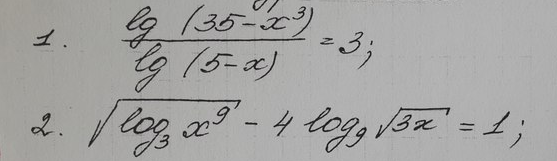 1. lg (35-x³) / lg (5-x) = 3;
2. √(log₃ x⁹) - 4 log₉ √(3x) = 1;